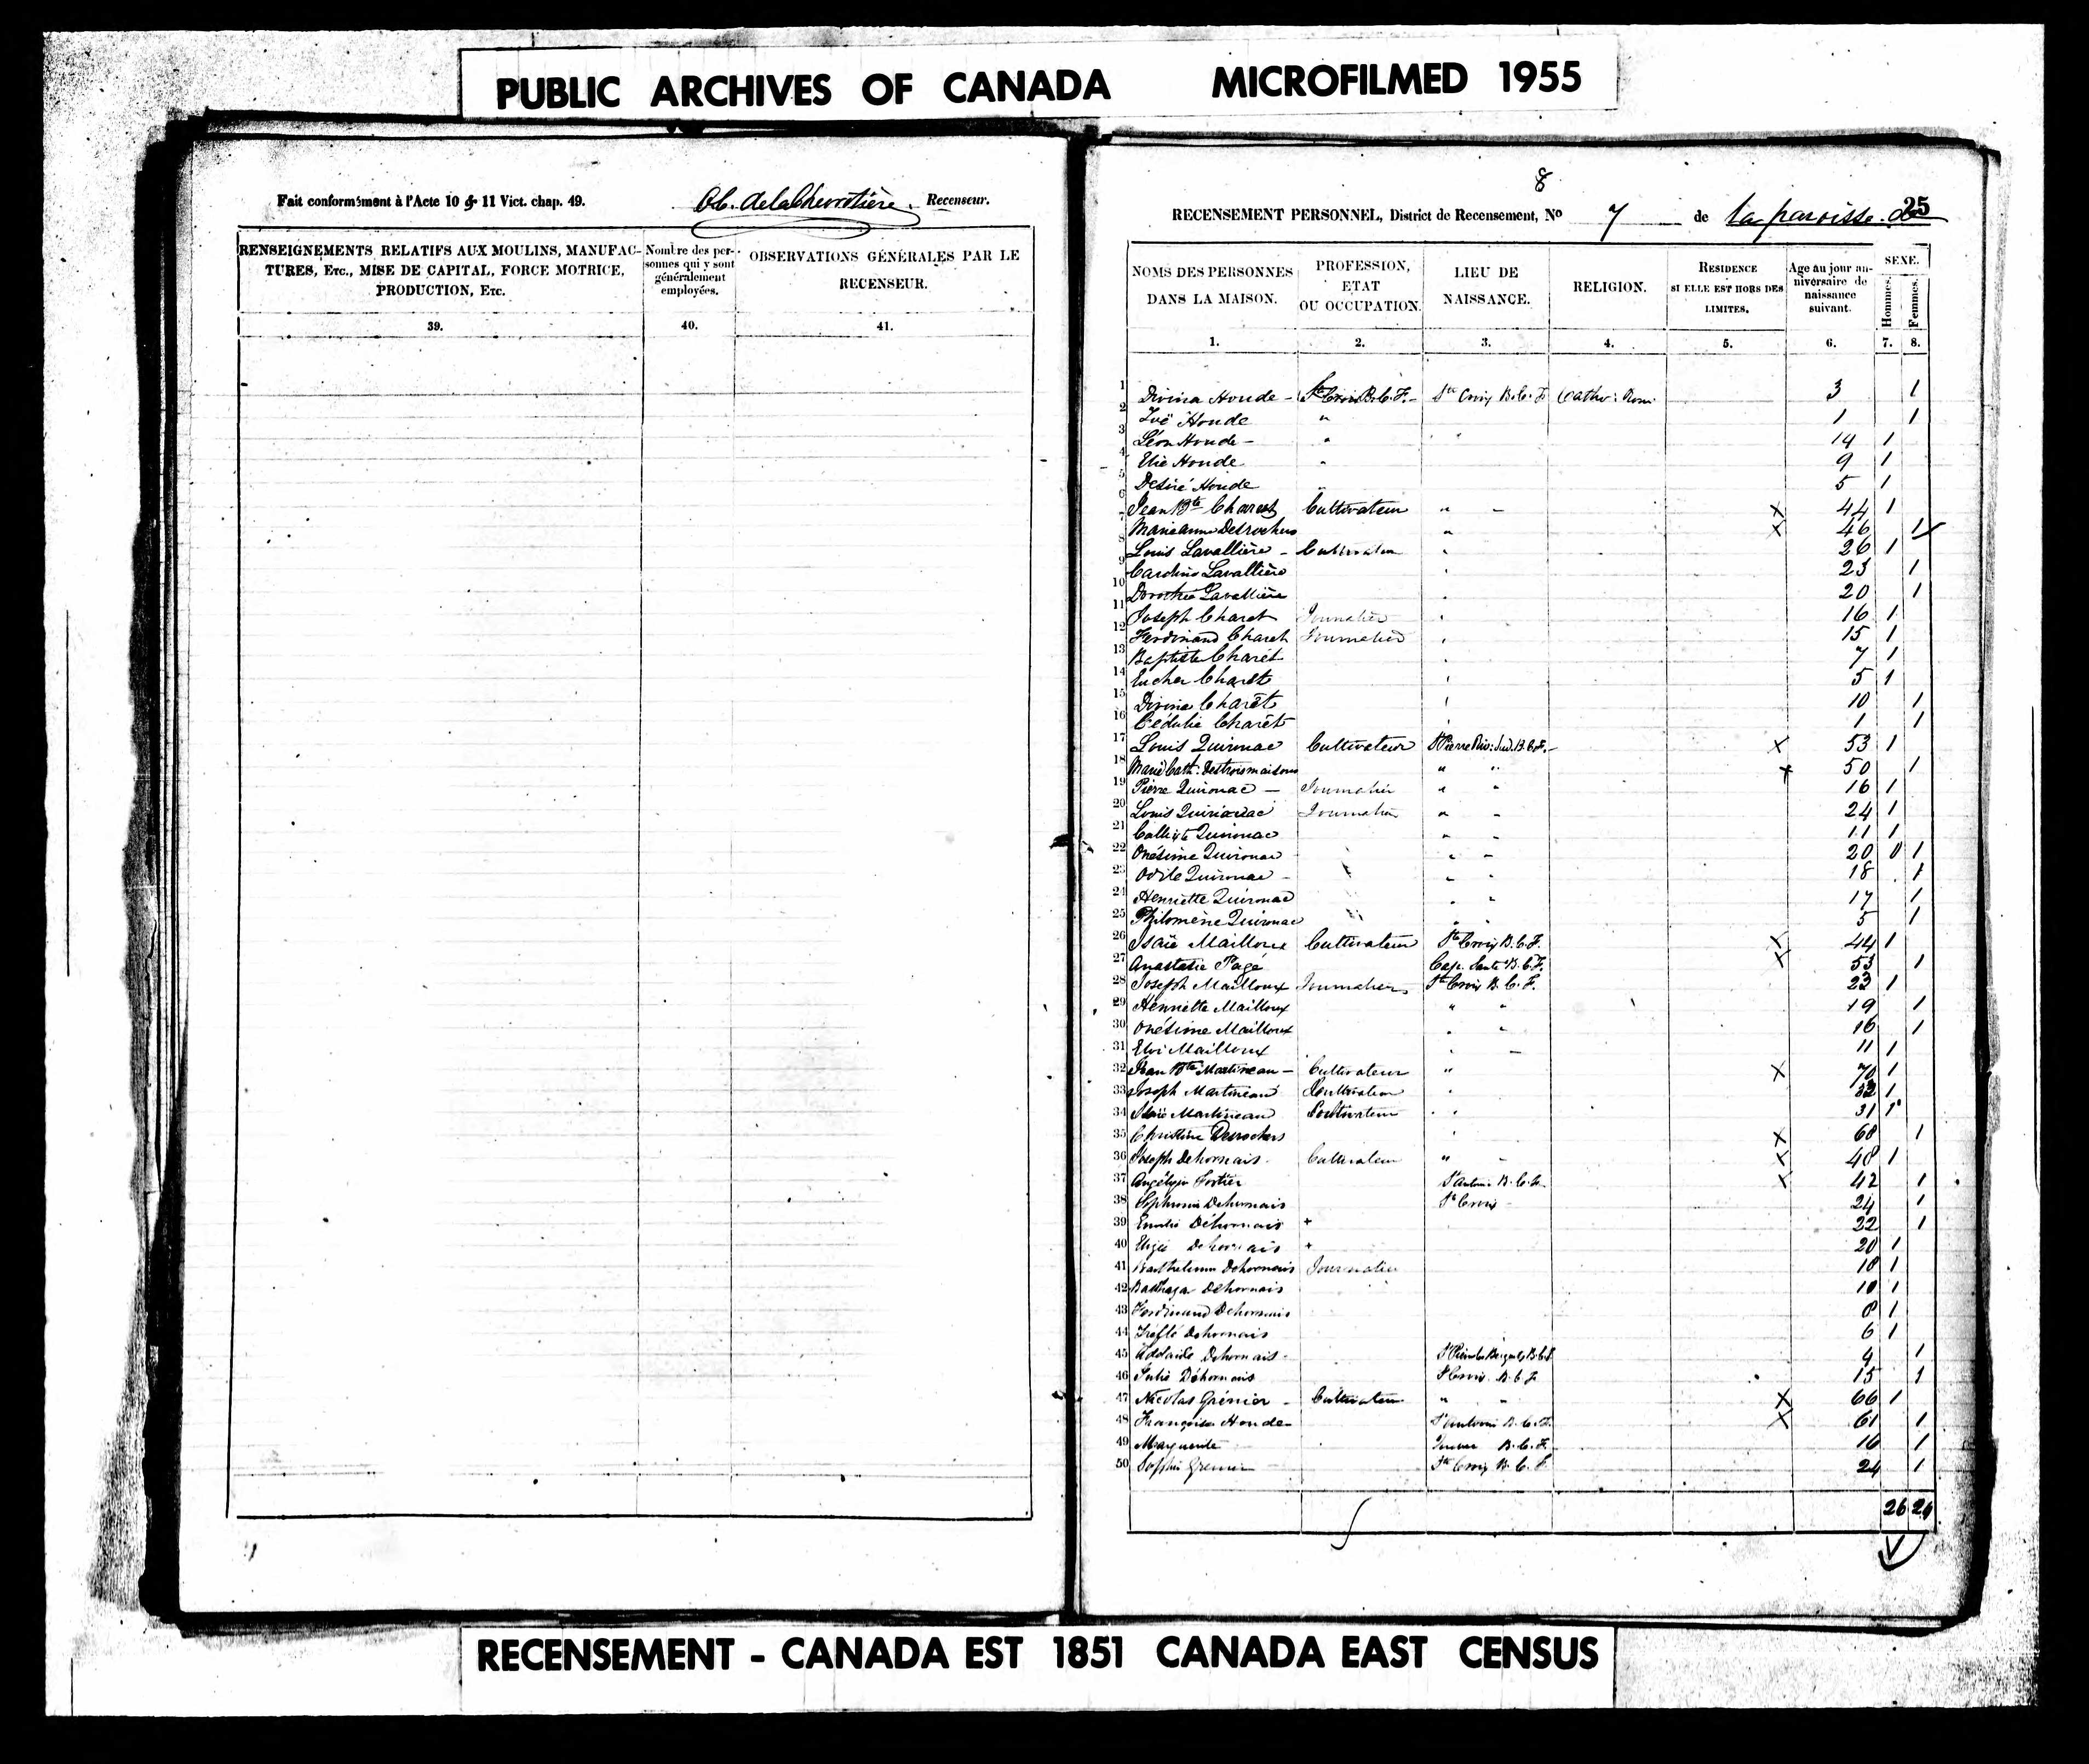 PUBLIC ARCHIVES OF CANADA MICROFILMED 1955
Fait conformément à l'Acte 10 & 11 Vict. chap. 49. Recenseur.
RENSEIGNEMENTS RELATIFS AUX MOULINS, MANUFAC-
TURES, Etc., MISE DE CAPITAL, FORCE MOTRICE,
PRODUCTION, Etc.
39.
Nombre des per-
sonnes qui y sont
généralement
employées.
40.
OBSERVATIONS GÉNÉRALES PAR LE
RECENSEUR.
41.
8
25
RECENSEMENT PERSONNEL, District de Recensement, No 7 de la paroisse de
NOMS DES PERSONNES
DANS LA MAISON.
1.
PROFESSION,
ETAT
OU OCCUPATION.
2.
LIEU DE
NAISSANCE.
3.
RELIGION.
4.
RESIDENCE
SI ELLE EST HORS DES
LIMITES.
5.
Age au jour an-
niversaire de
naissance
suivant.
6.
SEXE.
Hommes.
7.
Femmes.
8.
1 Divina Houde - Ste Croix B.C.F. - Ste Croix B.C.F. Catho: Rom. 3 1
2 Zoë Houde " 1 1
3 Léon Houde - " " 14 1
4 Elie Houde " 9 1
5 Desiré Houde " 5 1
6 Jean Bte Charest Cultivateur " - X 44 1
7 Marieanne Desrochers " X 46 1
8 Louis Lavallière - Cultivateur " 26 1
9 Caroline Lavallière " 23 1
10 Dorothée Lavallière " 20 1
11 Joseph Charet Journalier " 16 1
12 Ferdinand Charet Journalier " 15 1
13 Baptiste Charêt " 7 1
14 Eucher Charêt " 5 1
15 Divina Charêt " 10 1
16 Cédulie Charêt " 1 1
17 Louis Quirouac Cultivateur St Pierre Riv: Sud. B.C.F. - X 53 1
18 Marie Cath: Destroismaisons " " X 50 1
19 Pierre Quirouac - Journalier " " 16 1
20 Louis Quirouac Journalier " " 24 1
21 Callixte Quirouac " " 11 1
22 Onésime Quirouac " - 20 0 1
23 Odile Quirouac - " " 18 1
24 Henriette Quirouac " " 17 1
25 Philomène Quirouac " " 5 1
26 Isaïe Mailloux Cultivateur Ste Croix B.C.F. X 44 1
27 Anastasie Pagé Cap. Santé B.C.F. X 53 1
28 Joseph Mailloux Journalier Ste Croix B.C.F. 23 1
29 Henriette Mailloux " " 19 1
30 Onésime Mailloux " " 16 1
31 Eloi Mailloux " - 11 1
32 Jean Bte Martineau - Cultivateur " X 70 1
33 Joseph Martineau Cultivateur " 32 1
34 Martineau Cultivateur " " 31 1
35 Christine Desrochers " X 68 1
36 Joseph Dehornais. Cultivateur " - X 48 1
37 Angélique Fortier St Antoine B.C.F. X 42 1
38 Dehornais Ste Croix - 24 1
39 Emelie Déhornais + 22 1
40 Dehornais + 20 1
41 Dehornais Journalier 18 1
42 Dehornais 10 1
43 Ferdinand Dehornais 8 1
44 Tréflé Dehornais 6 1
45 Adelaide Dehornais - B.C.F. 4 1
46 Julie Déhornais Ste Croix. B.C.F. 15 1
47 Nicolas Grénier - Cultivateur " " X 66 1
48 Françoise Houde - St Antoine B.C.F. X 61 1
49 Marguerite B.C.F. 16 1
50 Sophie Grenier Ste Croix B.C.F. 24 1
26 24
RECENSEMENT - CANADA EST 1851 CANADA EAST CENSUS